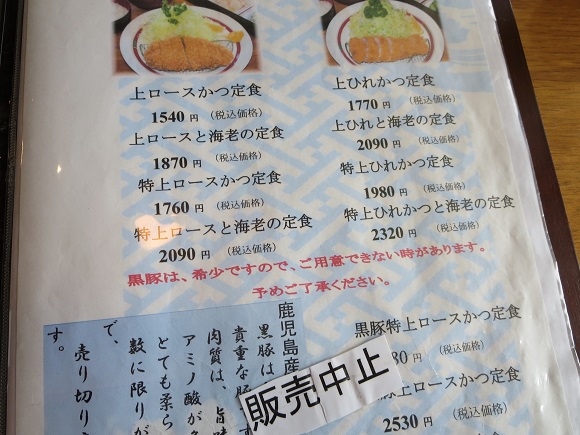 上ロースかつ定食
1540 円 (税込価格)
上ロースと海老の定食
1870 円 (税込価格)
特上ロースかつ定食
1760 円 (税込価格)
特上ロースと海老の定食
2090 円 (税込価格)
上ひれかつ定食
1770 円 (税込価格)
上ひれと海老の定食
2090 円 (税込価格)
特上ひれかつ定食
1980 円 (税込価格)
特上ひれかつと海老の定食
2320 円 (税込価格)
黒豚は、希少ですので、ご用意できない時があります。
予めご了承ください。
鹿児島産
黒豚は
貴重な豚
肉質は、旨味
アミノ酸が
とても柔ら
数に限りが
で、売り切り
す。
販売中止
黒豚特上ロースかつ定食
80 円 (税込価格)
上ロースと海老の定食
2530 円 (税込価格)